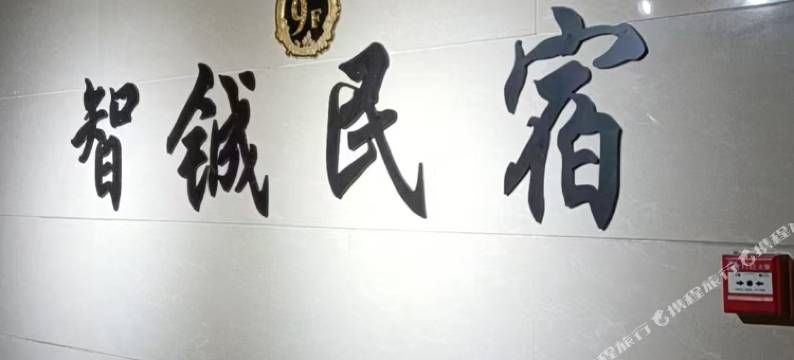 9F
智铖民宿
携程旅行 携程旅